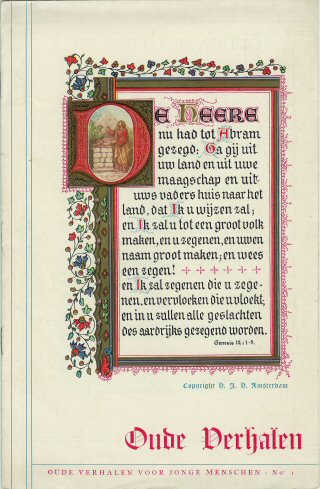 DE HEERE
nu had tot Abram
gezegd; Ga gij uit
uw land en uit uwe
maagschap en uit
uws vaders huis naar het
land, dat Ik u wijzen zal;
en Ik zal u tot een groot volk
maken, en u zegenen, en uwen
naam groot maken; en wees
een zegen!
en Ik zal zegenen die u zege-
nen, en vervloeken die u vloekt;
en in u zullen alle geslachten
des aardrijks gezegend worden.
Genesis 12:1-3.
Copyright D. J. D. Amsterdam
Oude Verhalen
OUDE VERHALEN VOOR JONGE MENSCHEN - No 1